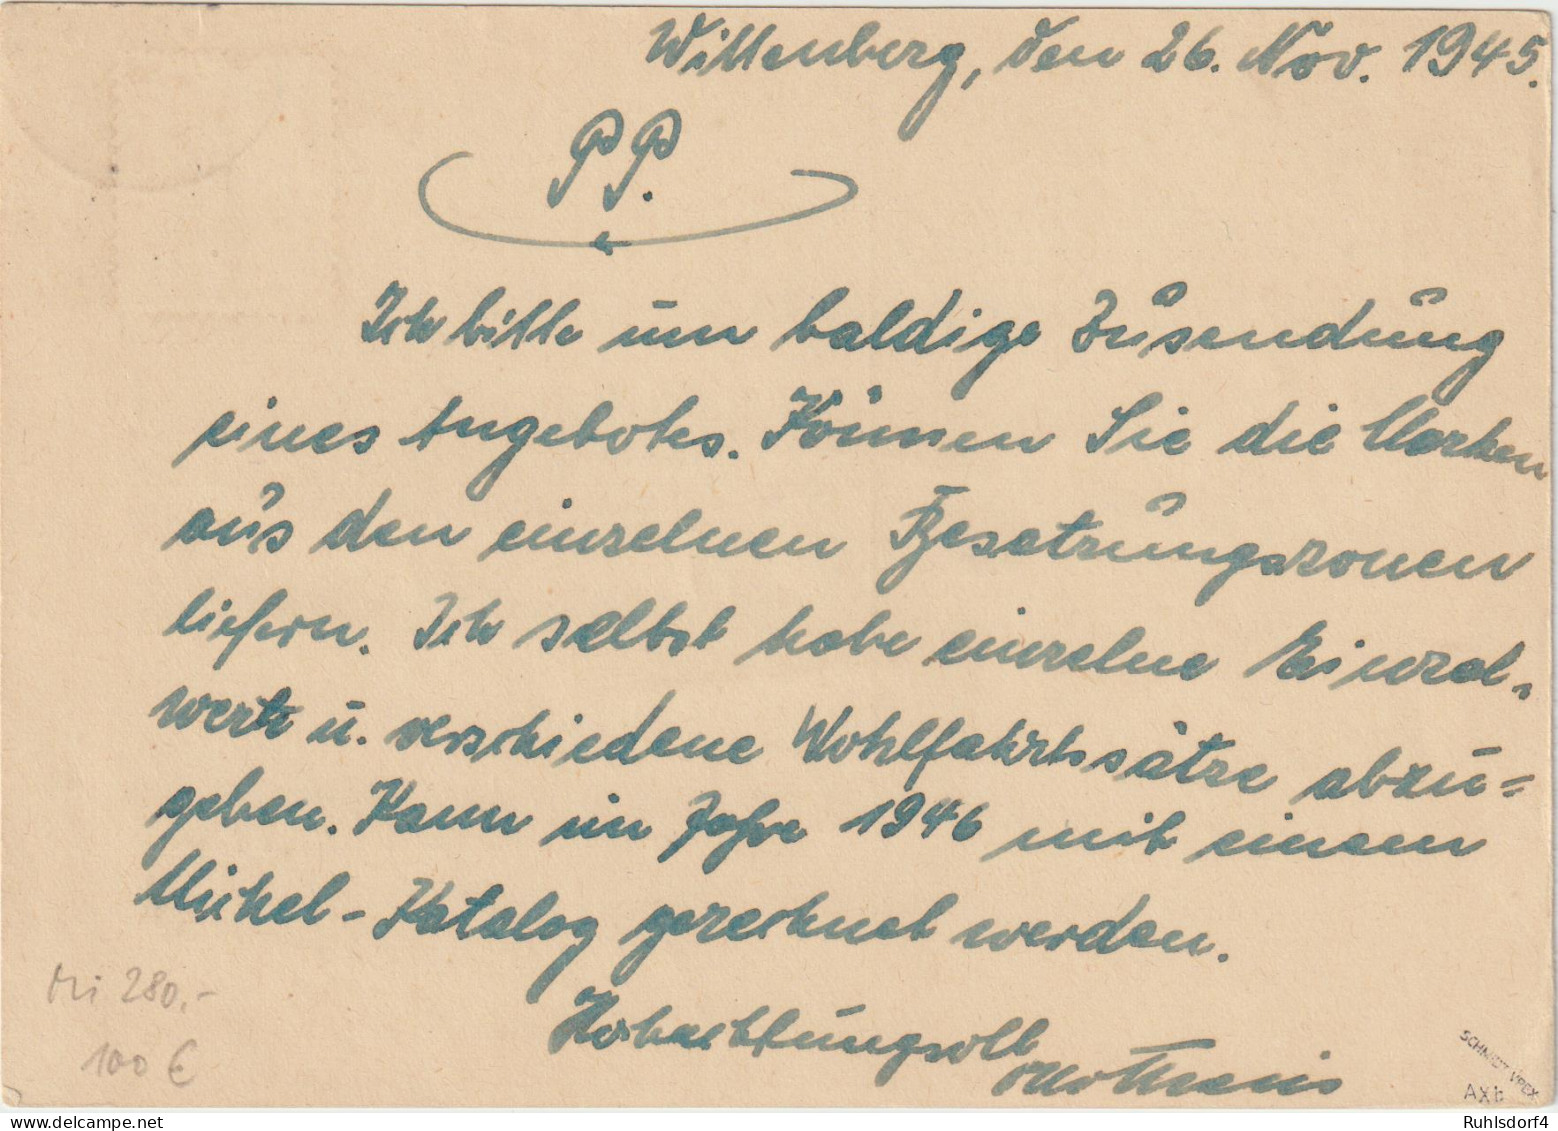 Wittenberg, den 26. Nov. 1945.
PP.
Ich bitte um baldige Zusendung
eines Angebotes. Können Sie die Marken
aus den einzelnen Besetzungszonen
liefern. Ich selbst habe einzelne Einzel-
werte u. verschiedene Wohlfahrtssätze abzu=
geben. Kann im Jahre 1946 mit einem
Michel-Katalog gerechnet werden.
Hochachtungsvoll
Mi 280,-
100 €
SCHMIDT VPEX
AXb
Ruhlsdorf4